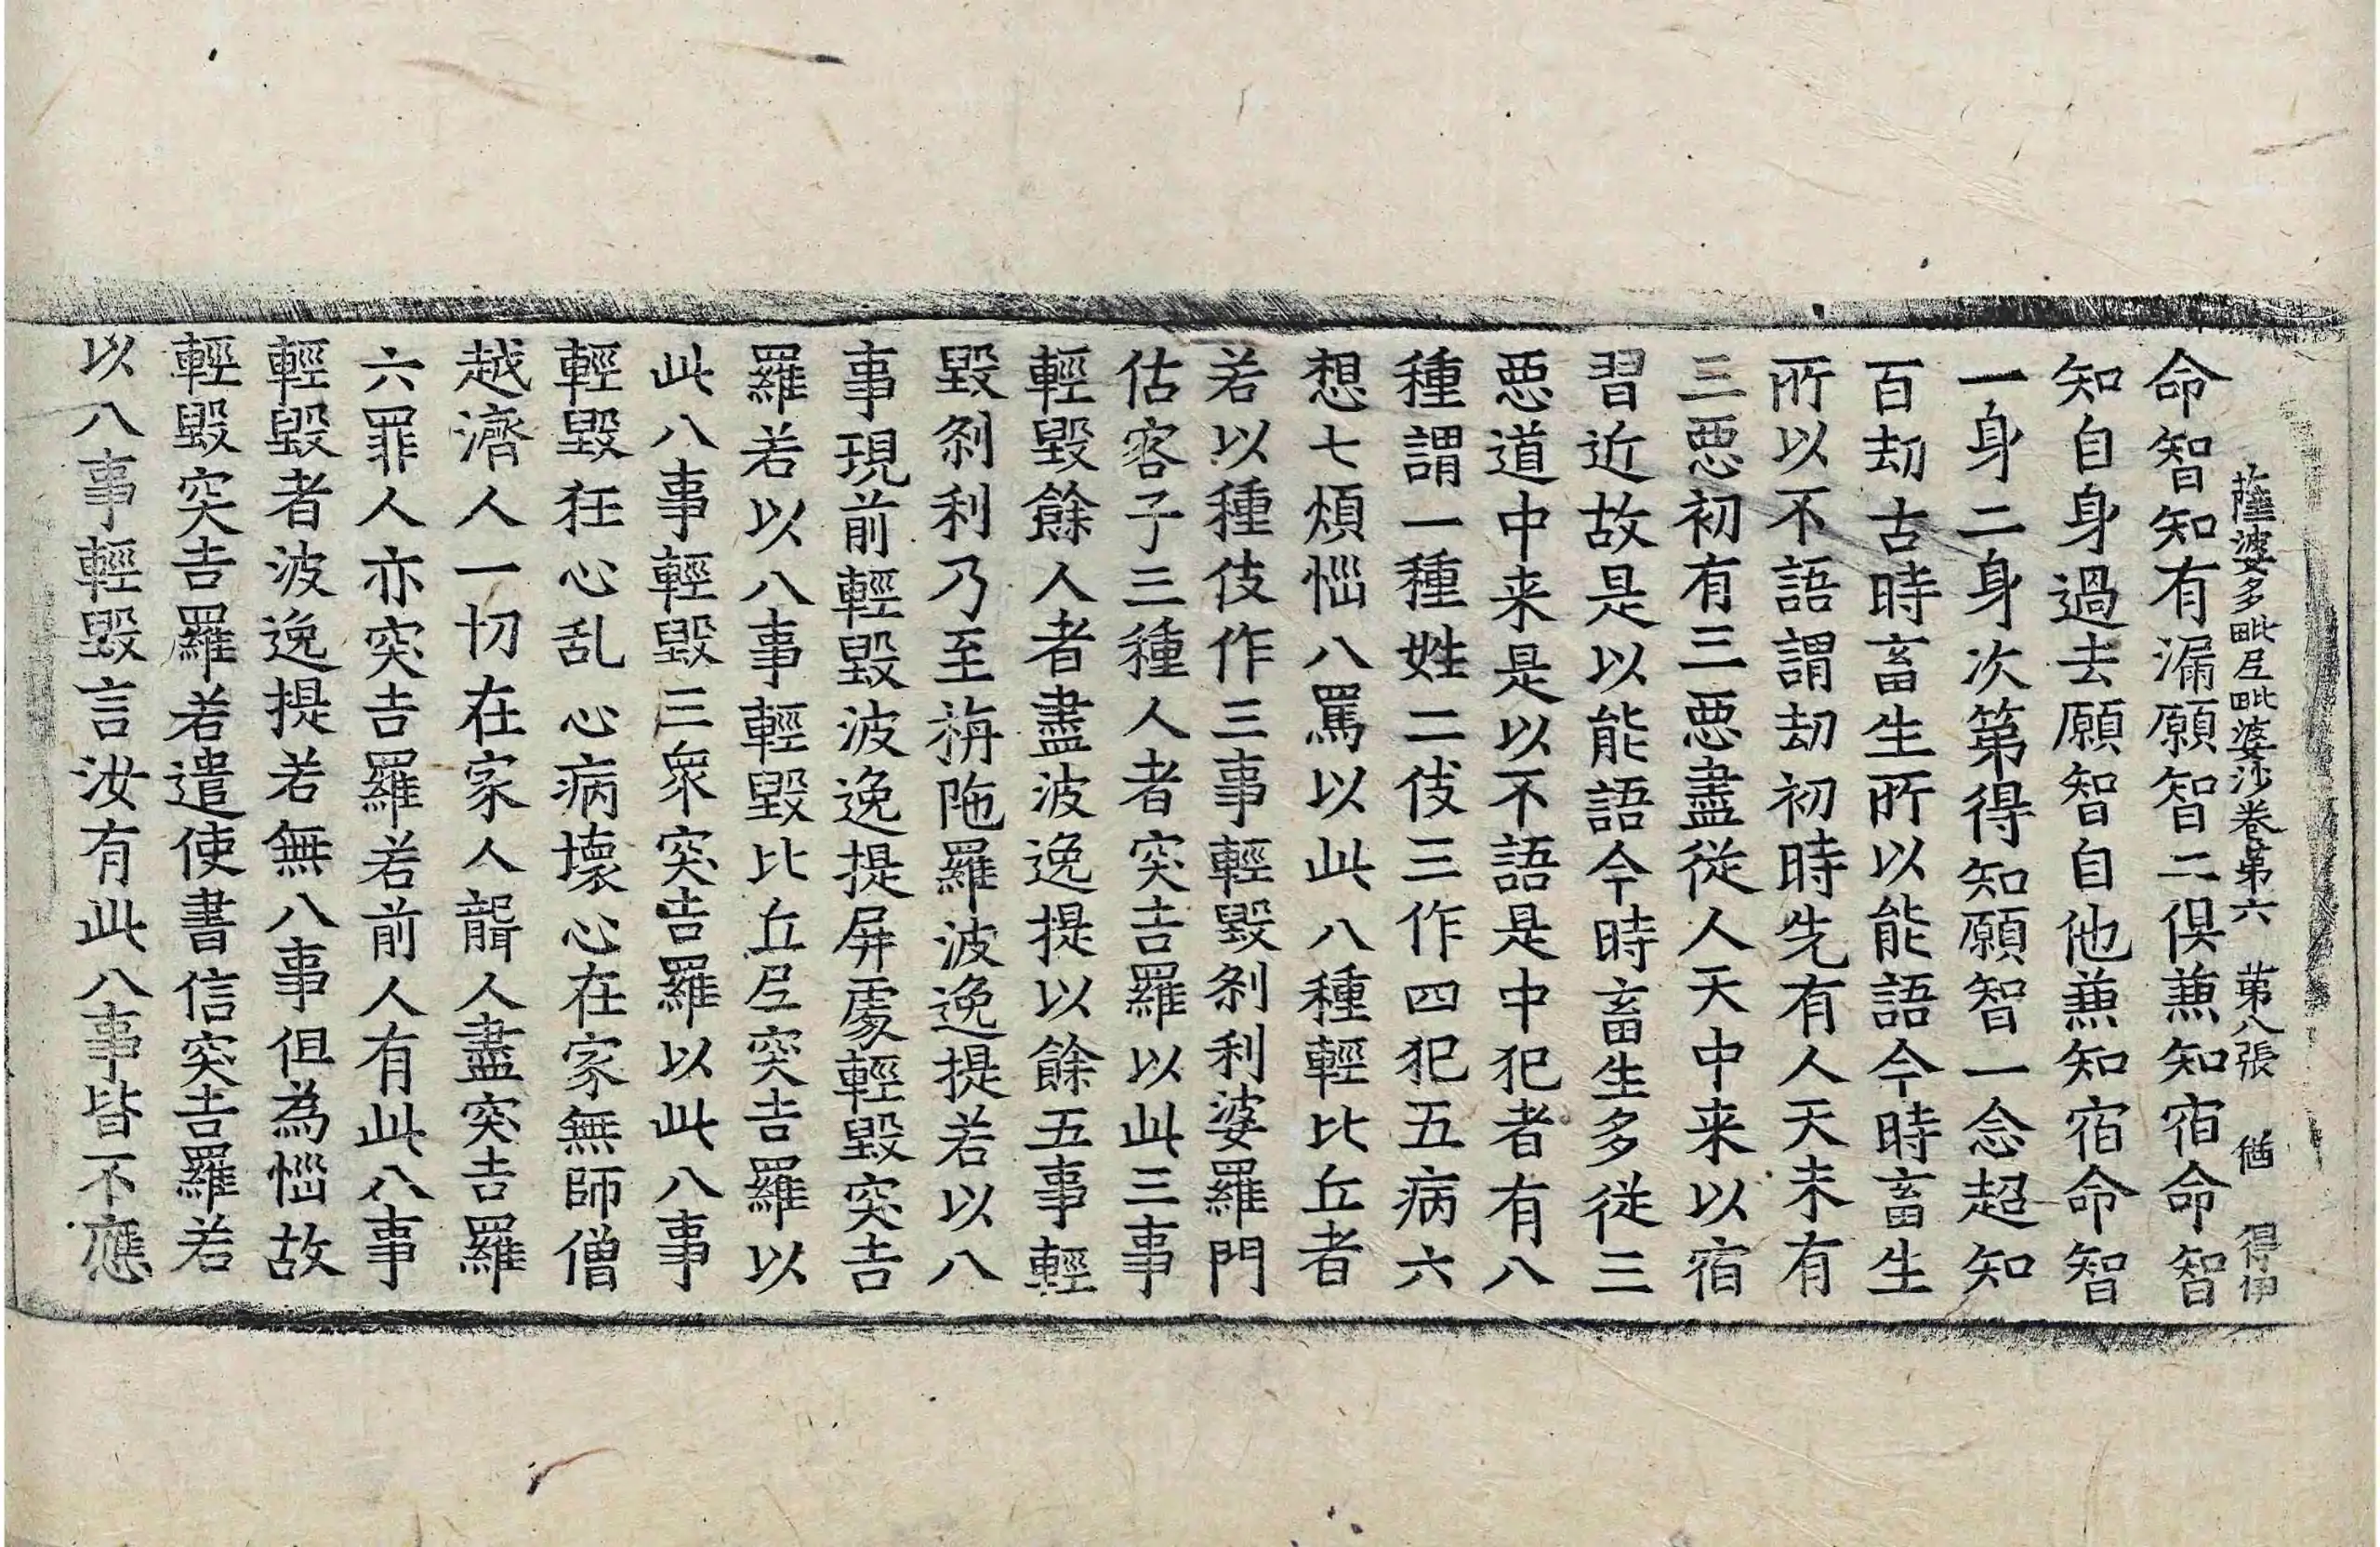 薩婆多毗尼毗婆沙卷第六 第八張 㒃 得伊
命智知有漏願智二俱兼知宿命智
知自身過去願智自他兼知宿命智
一身二身次第得知願智一念超知
百劫古時畜生所以能語今時畜生
所以不語謂劫初時先有人天未有
三惡初有三惡盡從人天中来以宿
習近故是以能語今時畜生多從三
惡道中来是以不語是中犯者有八
種謂一種姓二伎三作四犯五病六
想七煩惱八罵以此八種輕比丘者
若以種伎作三事輕毀刹利婆羅門
估客子三種人者突吉羅以此三事
輕毀餘人者盡波逸提以餘五事輕
毀刹利乃至旃陁羅波逸提若以八
事現前輕毀波逸提屏處輕毀突吉
羅若以八事輕毀比丘尼突吉羅以
此八事輕毀三衆突吉羅以此八事
輕毀狂心乱心病壞心在家無師僧
越濟人一切在家人聾人盡突吉羅
六罪人亦突吉羅若前人有此八事
輕毀者波逸提若無八事但為惱故
輕毀突吉羅若遣使書信突吉羅若
以八事輕毀言汝有此八事皆不應